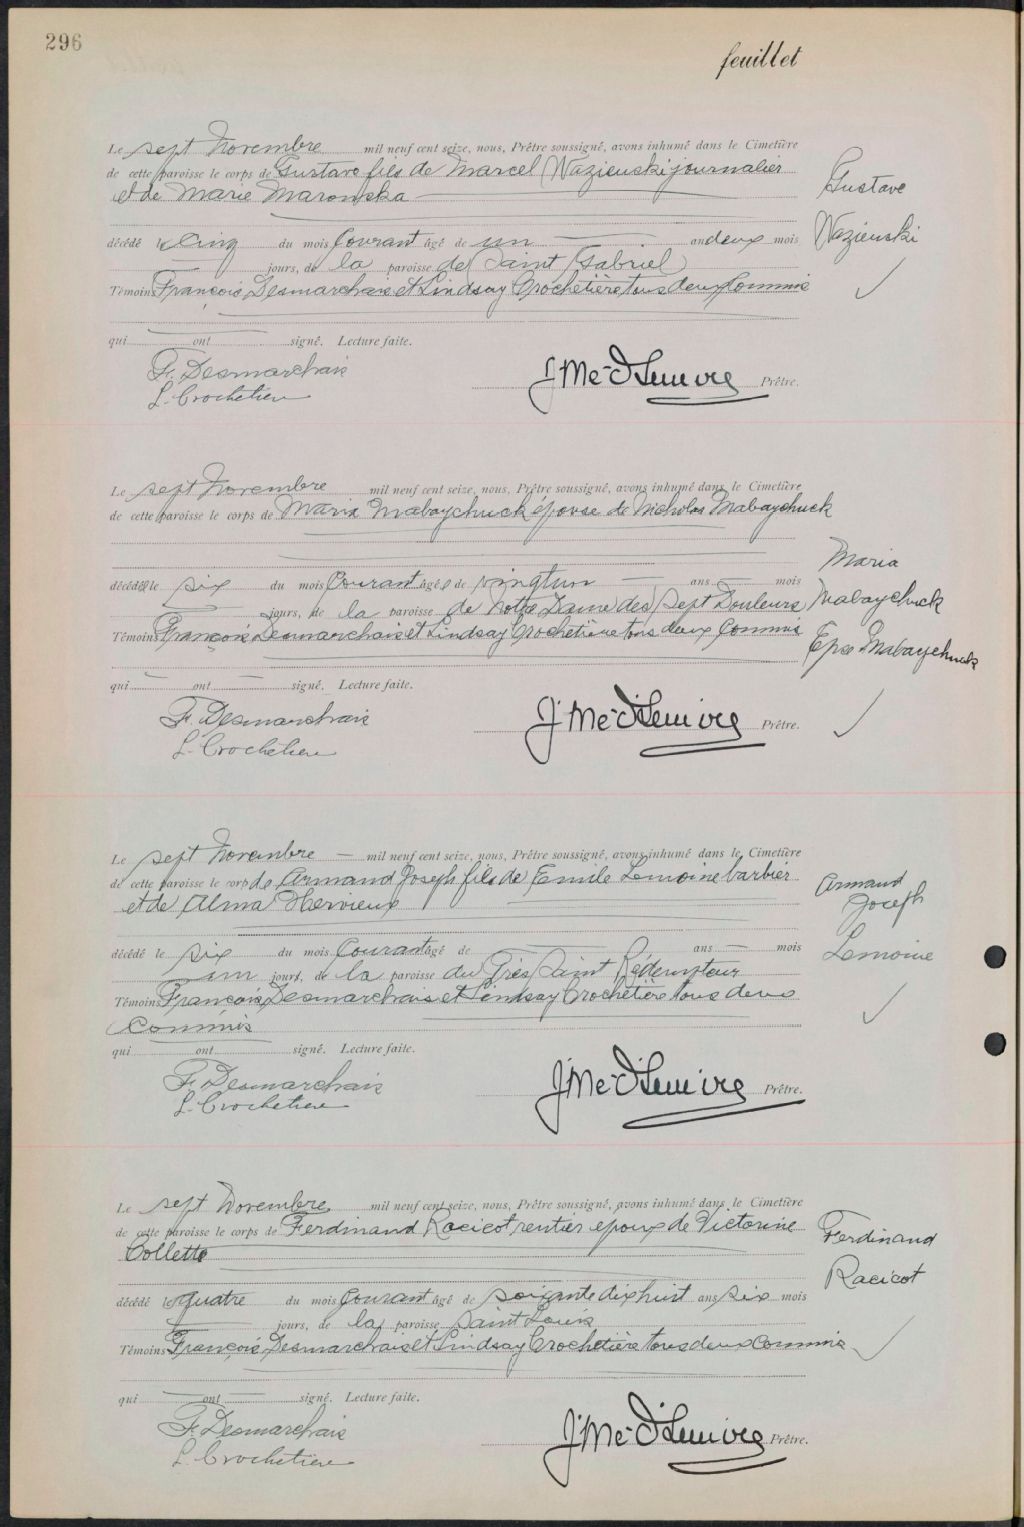 296
feuillet
Le sept Novembre mil neuf cent seize, nous, Prêtre soussigné, avons inhumé dans le Cimetière
de cette paroisse le corps de Gustave fils de Marcel Nazienski journalier
et de Marie Maronska
Gustave
Nazienski
décédé le cinq du mois Courant âgé de un an deux mois
jours, de la paroisse de Saint Gabriel
Témoins François Desmarchais et Lindsay Crochetière tous deux Commis
qui ont signé. Lecture faite.
F. Desmarchais
L. Crochetiere
Prêtre.
Le sept Novembre mil neuf cent seize, nous, Prêtre soussigné, avons inhumé dans le Cimetière
de cette paroisse le corps de Maria Mabaychuck épouse de Nicholas Mabaychuck
Maria
Mabaychuck
Epse Mabaychuck
décédée le six du mois Courant âgée de vingtun ans mois
jours, de la paroisse de Notre Dame des Sept Douleurs
Témoins François Desmarchais et Lindsay Crochetière tous deux Commis
qui ont signé. Lecture faite.
F. Desmarchais
L. Crochetiere
Prêtre.
Le sept Novembre mil neuf cent seize, nous, Prêtre soussigné, avons inhumé dans le Cimetière
de cette paroisse le corps de Armand Joseph fils de Emile Lemoine barbier
et de Alma Hervieux
Armand
Joseph
Lemoine
décédé le six du mois Courant âgé de ans mois
un jours, de la paroisse du Très Saint Rédempteur
Témoins François Desmarchais et Lindsay Crochetière tous deux
Commis
qui ont signé. Lecture faite.
F. Desmarchais
L. Crochetiere
Prêtre.
Le sept Novembre mil neuf cent seize, nous, Prêtre soussigné, avons inhumé dans le Cimetière
de cette paroisse le corps de Ferdinand Racicot rentier epoux de Victorine
Collette
Ferdinand
Racicot
décédé le quatre du mois Courant âgé de soixante dix huit ans six mois
jours, de la paroisse Saint Louis
Témoins François Desmarchais et Lindsay Crochetière tous deux Commis
qui ont signé. Lecture faite.
F. Desmarchais
L. Crochetiere
Prêtre.